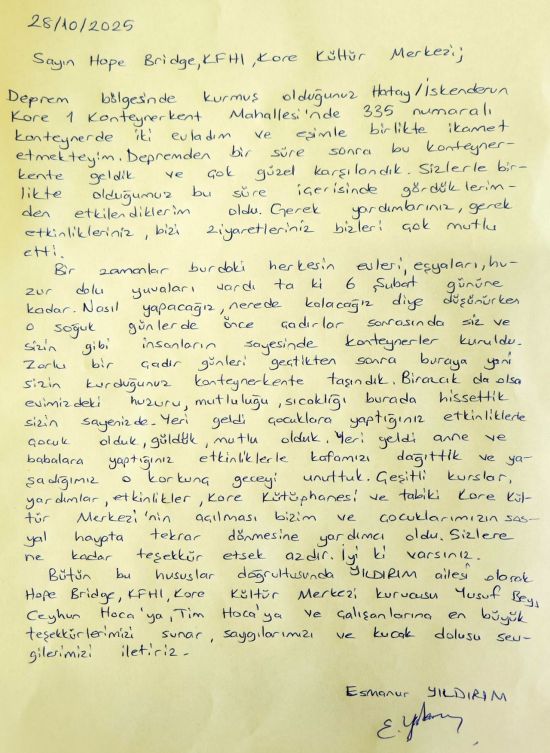 28/10/2025
Sayın Hope Bridge, KFHI, Kore Kültür Merkezi;
Deprem bölgesinde kurmuş olduğunuz Hatay/İskenderun
Kore 1 Konteynerkent Mahallesi'nde 335 numaralı
konteynerde iki evladım ve eşimle birlikte ikamet
etmekteyim. Depremden bir süre sonra bu konteyner-
kente geldik ve çok güzel karşılandık. Sizlerle bir-
likte olduğumuz bu süre içerisinde gördüklerim-
den etkilendiklerim oldu. Gerek yardımlarınız, gerek
etkinlikleriniz, bizi ziyaretleriniz bizleri çok mutlu
etti.
Bir zamanlar burdaki herkesin evleri, eşyaları, hu-
zur dolu yuvaları vardı ta ki 6 Şubat gününe
kadar. Nasıl yapacağız, nerede kalacağız diye düşünürken
o soğuk günlerde önce çadırlar sonrasında siz ve
sizin gibi insanların sayesinde konteynerler kuruldu.
Zorlu bir çadır günleri geçtikten sonra buraya yani
sizin kurduğunuz konteynerkente taşındık. Birazcık da olsa
evimizdeki huzuru, mutluluğu, sıcaklığı burada hissettik
sizin sayenizde. Yeri geldi çocuklara yaptığınız etkinliklerle
çocuk olduk, güldük, mutlu olduk. Yeri geldi anne ve
babalara yaptığınız etkinliklerle kafamızı dağıttik ve ya-
şadığımız o korkunç geceyi unuttuk. Çeşitli kurslar,
yardımlar, etkinlikler, Kore Kütüphanesi ve tabiki Kore Kül-
tür Merkezi'nin açılması bizim ve çocuklarımızın sos-
yal hayata tekrar dönmesine yardımcı oldu. Sizlere
ne kadar teşekkür etsek azdır. İyi ki varsınız.
Bütün bu hususlar doğrultusunda YILDIRIM ailesi olarak
Hope Bridge, KFHI, Kore Kültür Merkezi kurucusu Yusuf Bey,
Ceyhun Hoca'ya, Tim Hoca'ya ve çalışanlarına en büyük
teşekkürlerimizi sunar, saygılarımızı ve kucak dolusu sev-
gilerimizi iletiriz.
Esmanur YILDIRIM